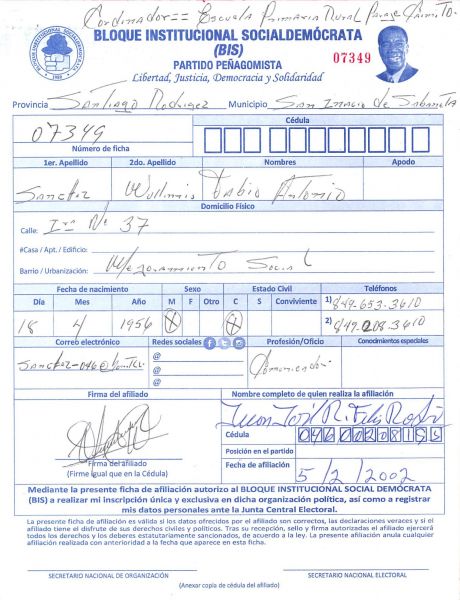 Escuela Primaria Rural
BLOQUE INSTITUCIONAL SOCIALDEMÓCRATA
(BIS)
PARTIDO PEÑAGOMISTA
07349
Libertad, Justicia, Democracia y Solidaridad
Provincia Santiago Rodriguez Municipio San Ignacio de Sabaneta
07349
Número de ficha
Cédula
1er. Apellido 2do. Apellido Nombres Apodo
Sanchez Fabio Antonio
Domicilio Físico
Calle: Ira Nº 37
#Casa / Apt. / Edificio:
Barrio / Urbanización: Mejoramiento Social
Fecha de nacimiento Sexo Estado Civil Teléfonos
Día Mes Año M F Otro C S Conviviente 1) 849-653-3610
18 4 1956 X X 2) 847-208-3610
Correo electrónico Redes sociales Profesión/Oficio Conocimientos especiales
@
@
@
Firma del afiliado Nombre completo de quien realiza la afiliación
Juan José R.
Cédula
Posición en el partido
Firma del afiliado
(Firme igual que en la Cédula)
Fecha de afiliación 5/2/2002
Mediante la presente ficha de afiliación autorizo al BLOQUE INSTITUCIONAL SOCIAL DEMÓCRATA
(BIS) a realizar mi inscripción única y exclusiva en dicha organización política, así como a registrar
mis datos personales ante la Junta Central Electoral.
La presente ficha de afiliación es válida si los datos ofrecidos por el afiliado son correctos, las declaraciones veraces y si el
afiliado tiene el disfrute de sus derechos civiles y políticos. Tras su recepción, sello y firma autorizadas el afiliado ejercerá
todos los derechos y los deberes estatutariamente sancionados, de acuerdo a la ley. La presente afiliación anula cualquier
afiliación realizada con anterioridad a la fecha que aparece en esta ficha.
SECRETARIO NACIONAL DE ORGANIZACIÓN SECRETARIO NACIONAL ELECTORAL
(Anexar copia de cédula del afiliado)